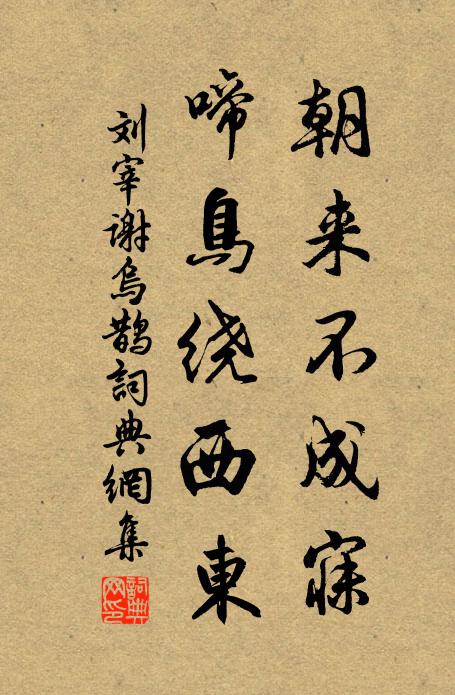 朝来不成寐
啼鳥绕西東
刘宰谢烏鵲詞典網集
詞典
网印